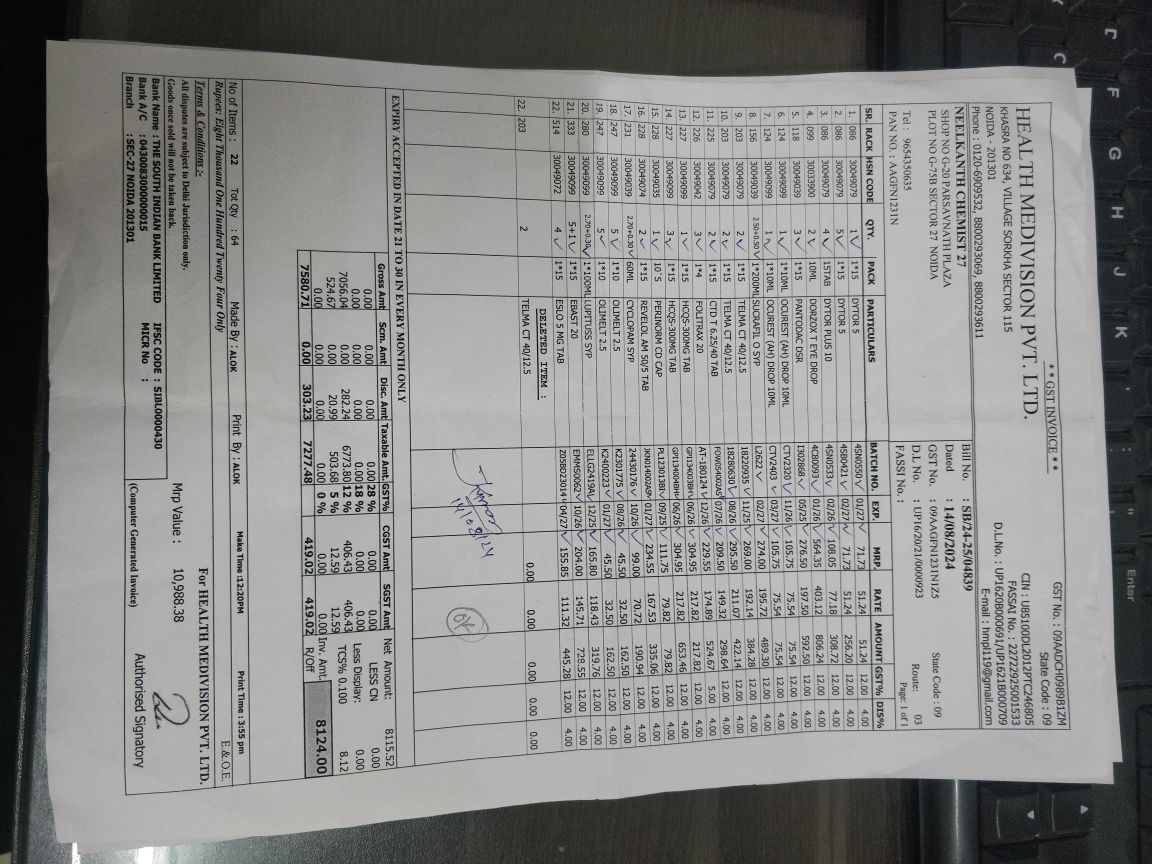 ** GST INVOICE **
HEALTH MEDIVISION PVT. LTD.
KHASRA NO 634, VILLAGE SORKHA SECTOR 115
NOIDA - 201301
Phone : 0120-6909532, 8800293069, 8800293611
GST No. : 09AADCH0989B1ZM
State Code : 09
CIN : U85100DL2012PTC246805
FASSAI No. : 22722925001533
D.L.No. : UP1620B000691/UP1621B000709
E-mail : hmpl119@gmail.com
NEELKANTH CHEMIST 27
SHOP NO G-20 PARSAVNATH PLAZA
PLOT NO G-75B SECTOR 27 NOIDA
Tel : 9654350635
PAN NO. : AAGFN1231N
Bill No. : SB/24-25/04839
Dated : 14/08/2024
GST No. : 09AAGFN1231N1Z5 State Code : 09
D.I. No. : UP16/20/21/0000923 Route: 03
FASSI No. : Page: 1 of 1
SR. RACK HSN CODE QTY. PACK PARTICULARS BATCH NO. EXP. MRP. RATE AMOUNT GST% DIS%
1. 086 30049079 1 1*15 DYTOR 5 4SN0550 01/27 71.73 51.24 51.24 12.00 4.00
2. 086 30049079 5 1*15 DYTOR 5 4SB0421 02/27 71.73 51.24 256.20 12.00 4.00
3. 086 30049079 4 15TAB DYTOR PLUS 10 4SN0533 02/26 108.05 77.18 308.72 12.00 4.00
4. 099 30033900 2 10ML DORZOX T EYE DROP 4C80093 01/26 564.35 403.12 806.24 12.00 4.00
5. 118 30049039 3 1*15 PANTODAC DSR I302868 05/25 276.50 197.50 592.50 12.00 4.00
6. 124 30049099 1 1*10ML OCUREST (AH) DROP 10ML CTV2320 11/26 105.75 75.54 75.54 12.00 4.00
7. 124 30049099 1 1*10ML OCUREST (AH) DROP 10ML CTV2403 03/27 105.75 75.54 75.54 12.00 4.00
8. 156 30049039 2.50+0.50 1*200ML SUCRAFIL O SYP L2622 02/27 274.00 195.72 489.30 12.00 4.00
9. 203 30049079 2 1*15 TELMA CT 40/12.5 18220935 11/25 269.00 192.14 384.28 12.00 4.00
10. 203 30049079 2 1*15 TELMA CT 40/12.5 18280630 08/26 295.50 211.07 422.14 12.00 4.00
11. 225 30049079 2 1*15 CTD T 6.25/40 TAB 07/26 209.50 149.32 298.64 12.00 4.00
12. 226 30049042 3 1*4 FOLITRAX 20 AT-180124 12/26 229.55 174.89 524.67 5.00 4.00
13. 227 30049099 1 1*15 HCQS-300MG TAB 06/26 304.95 217.82 217.82 12.00 4.00
14. 227 30049099 3 1*15 HCQS-300MG TAB 06/26 304.95 217.82 653.46 12.00 4.00
15. 228 30049035 1 10`S PERINORM CD CAP 09/25 111.75 79.82 79.82 12.00 4.00
16. 228 30049074 2 1*15 REVELOL AM 50/5 TAB 01/27 234.55 167.53 335.06 12.00 4.00
17. 231 30049039 2.70+0.30 60ML CYCLOPAM SYP 24430176 10/26 99.00 70.72 190.94 12.00 4.00
18. 247 30049099 5 1*10 OLIMELT 2.5 K2301775 08/26 45.50 32.50 162.50 12.00 4.00
19. 247 30049099 5 1*10 OLIMELT 2.5 K2400223 01/27 45.50 32.50 162.50 12.00 4.00
20. 280 30049099 2.70+0.30 1*100ML LUPITUSS SYP ELLG2419AL 12/25 165.80 118.43 319.76 12.00 4.00
21. 333 30049099 5+1 1*15 EBAST 20 EMMS0062 10/26 204.00 145.71 728.55 12.00 4.00
22. 514 30049072 4 1*15 ESLO 5 MG TAB 205BD23014 04/27 155.85 111.32 445.28 12.00 4.00
DELETED ITEM :
22. 203 2 TELMA CT 40/12.5 0.00 0.00 0.00 0.00 0.00
14/08/24
OK
EXPIRY ACCEPTED IN DATE 21 TO 30 IN EVERY MONTH ONLY
Gross Amt Scm. Amt Disc. Amt Taxable Amt. GST% CGST Amt SGST Amt
0.00 0.00 0.00 0.00 28 % 0.00 0.00
0.00 0.00 0.00 0.00 18 % 0.00 0.00
7056.04 0.00 282.24 6773.80 12 % 406.43 406.43
524.67 0.00 20.99 503.68 5 % 12.59 12.59
0.00 0.00 0.00 0.00 0 % 0.00 0.00
7580.71 0.00 303.23 7277.48 419.02 419.02
Net Amount: 8115.52
LESS CN 0.00
Less Display: 0.00
TCS% 0.100 8.12
Inv. Amt. 8124.00
R/Off
No of Items : 22 Tot Qty : 64 Made By : ALOK Print By : ALOK Make Time :12:20PM Print Time : 3:55 pm
Rupees: Eight Thousand One Hundred Twenty Four Only E.& O.E.
Terms & Conditions :-
All disputes are subject to Delhi Jurisdiction only.
Goods once sold will not be taken back.
Mrp Value : 10,988.38
For HEALTH MEDIVISION PVT. LTD.
Bank Name : THE SOUTH INDIAN BANK LIMITED IFSC CODE : SIBL0000430
Bank A/C : 0430083000000015 MICR No :
Branch :SEC-27 NOIDA 201301
(Computer Generated Invoice)
Authorised Signatory
F G H J K
Enter